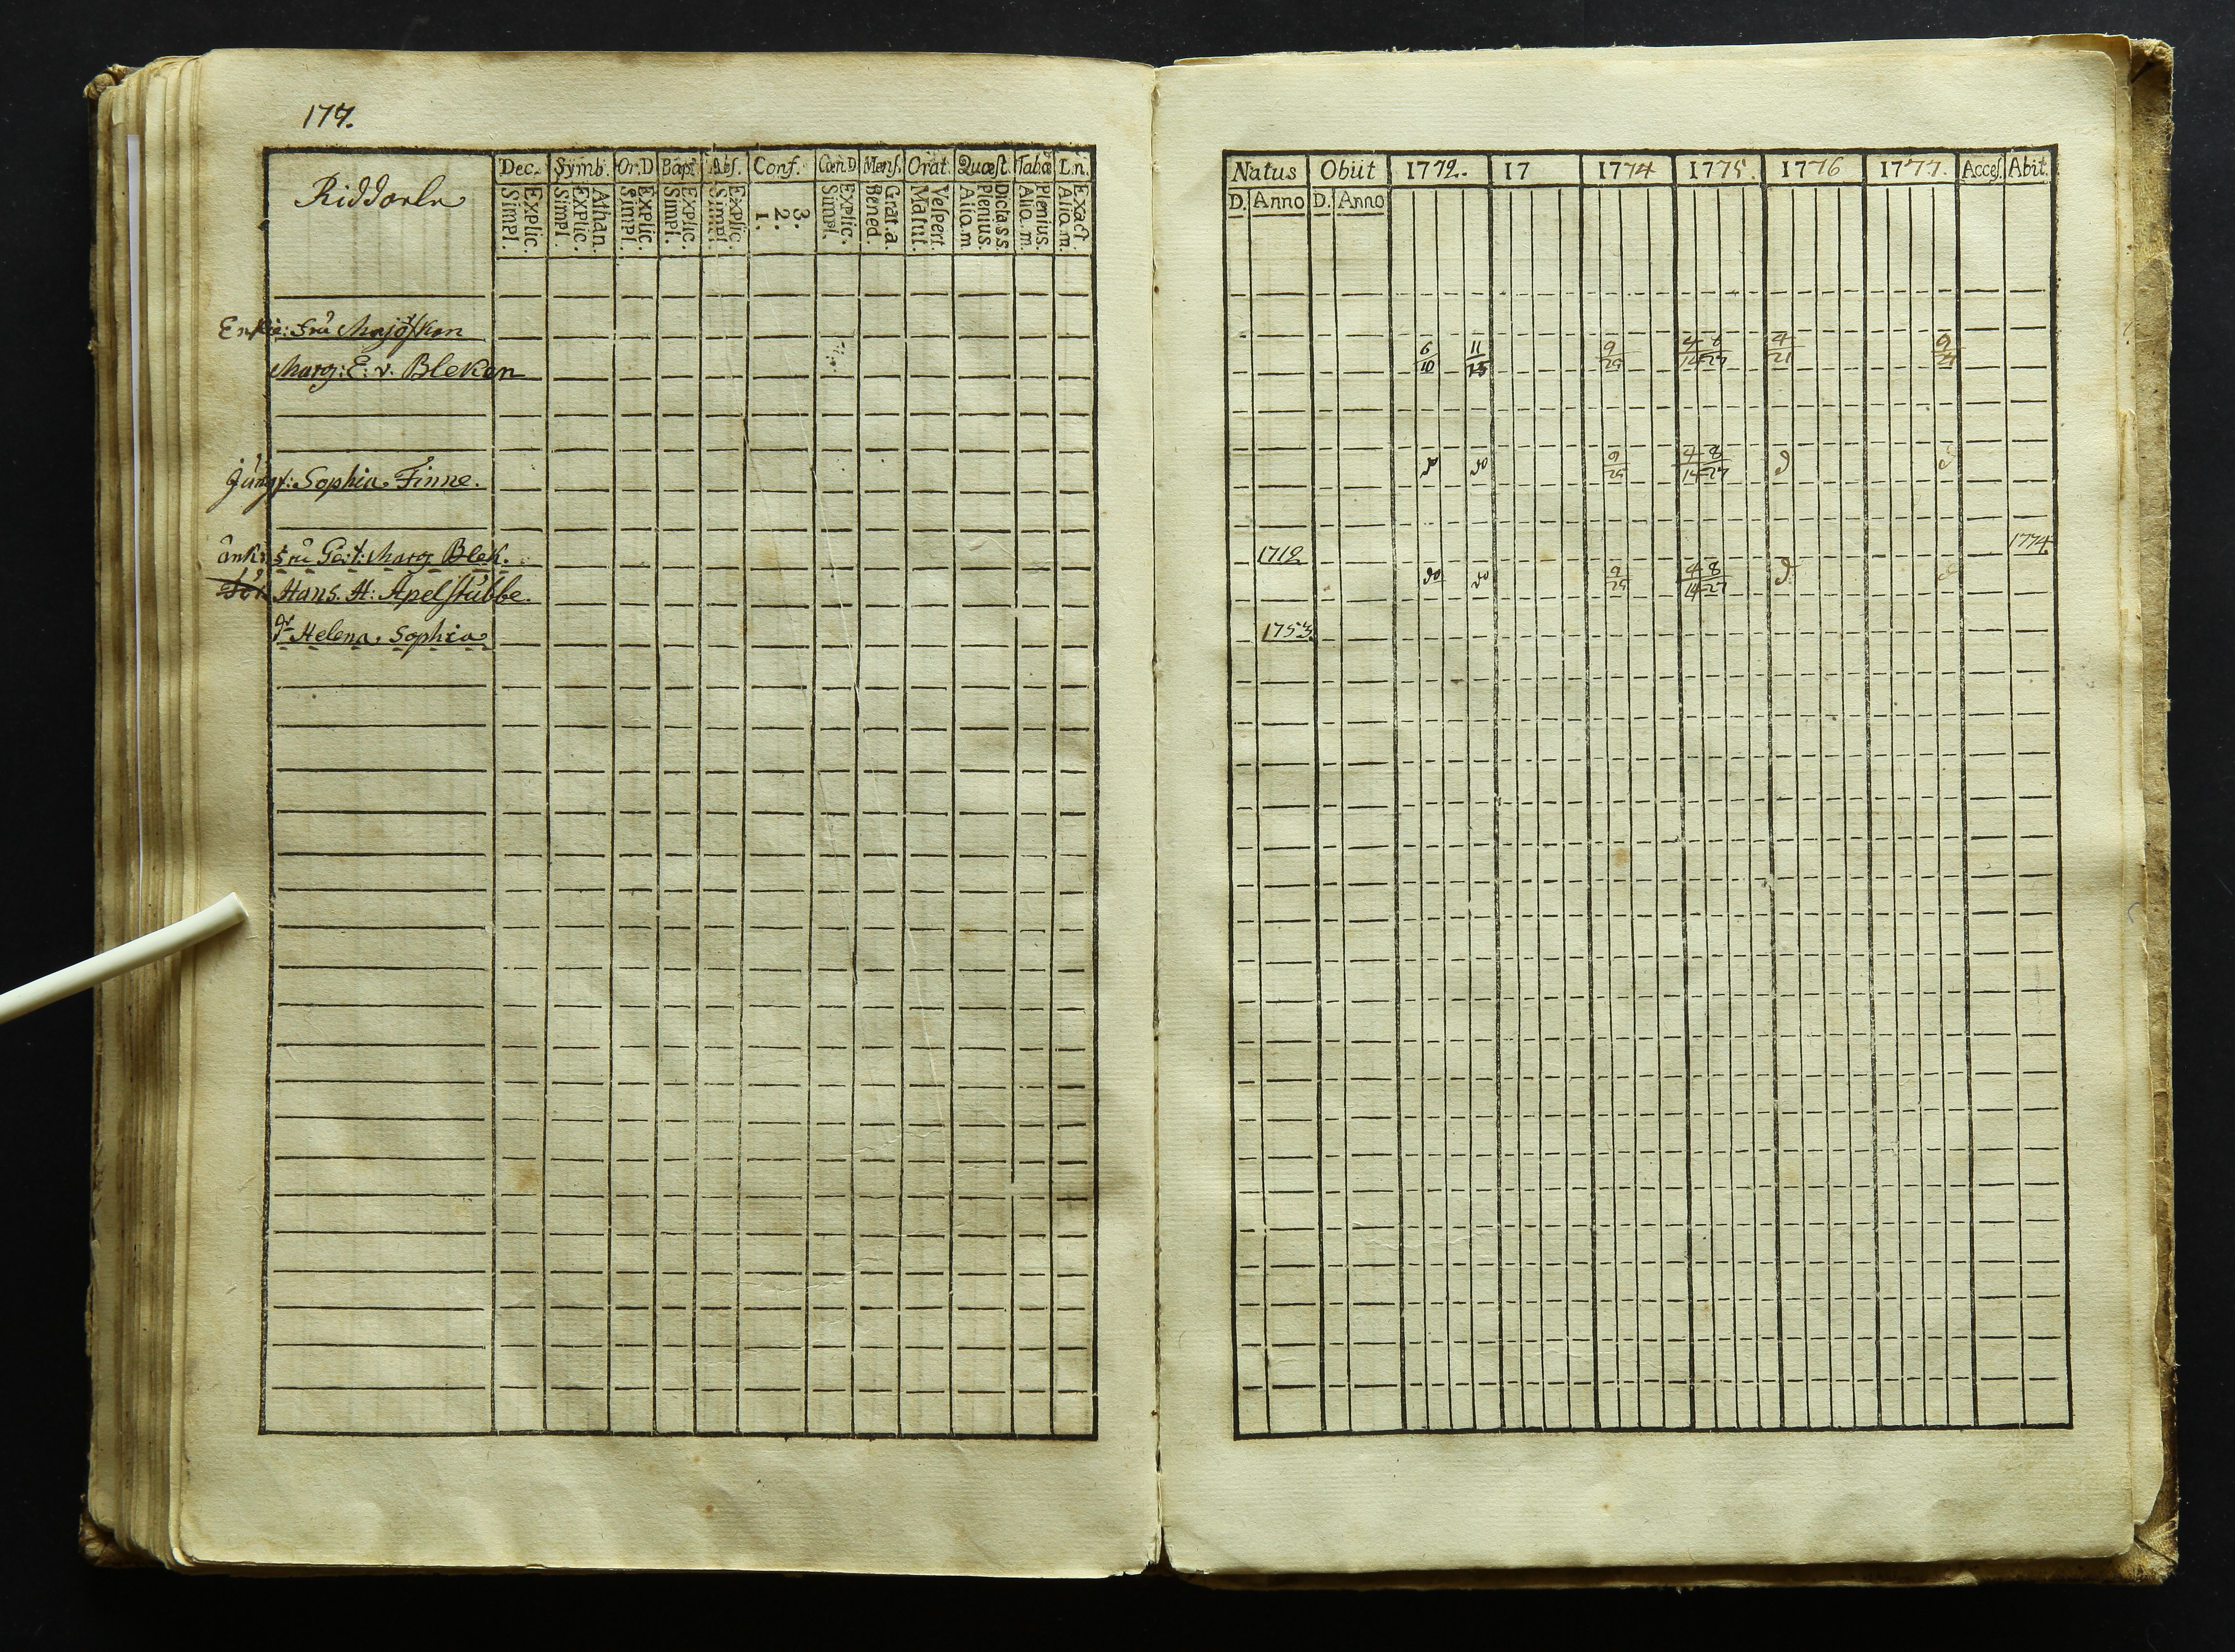 177.
Riddarln Dec. Symb. Or.D Bapt. Abs. Conf. Cœn.D Mens. Orat. Quæst. Tabæ L.n.
Explic. Simpl. Athan. Explic. Simpl. Explic. Simpl. Explic. Simpl. Explic. Simpl. 3. 2. 1. Explic. Simpl. Grat.a. Bened. Vespert. Matut. Dicta.s.s. Plenius. Alio.m. Plenius. Alio.m. Exact. Alio.m.
Enkie: Fru Majorskan
Marg: E: v. Bleken
Jungf: Sophia Finne.
Änk: Fru Gert: Marg Blek.
Hans. H: Apelstubbe.
Helena. Sophia
Natus Obiit 1772. 17 1774 1775. 1776 1777. Acces. Abit.
D. Anno D. Anno
6/10 11/15 9/25 4/14 8/27 4/21
do do 9/25 4/14 8/27 d d
1712 1774
do do 9/25 4/14 8/27 d d
1753.